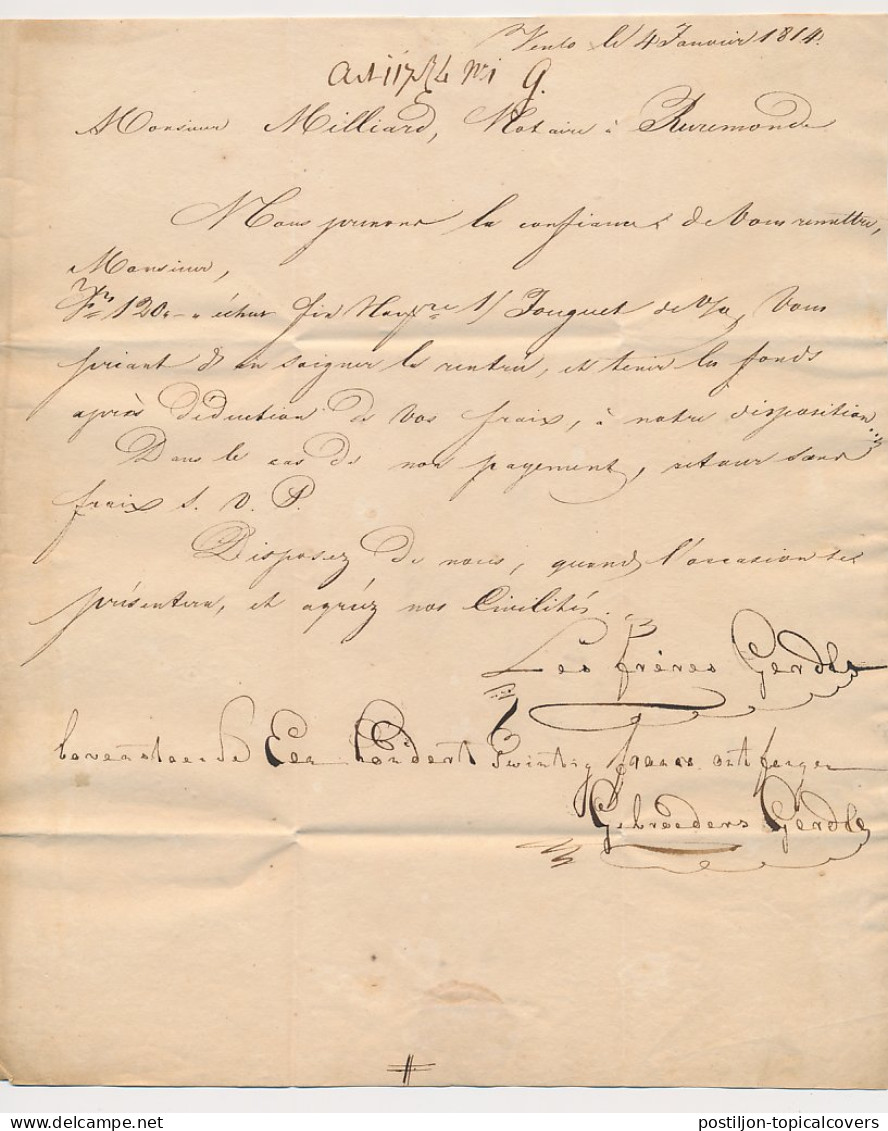 Venlo le 4 Janvier 1814.
Art 117 § 4 No 1 G.
Monsieur Milliard, Notaire à Ruremonde
Nous prenons la confiance de Vous remettre,
Monsieur,
Frs 120,- échus fin 1/ Jouguet de Vous
priant d'en soigner la rentrée, et tenir les fonds
après déduction de Vos fraix, à notre disposition
Dans le cas de non payement, retour sans
fraix s. v. P.
Disposez de nous, quand l'occasion se
présentera, et agréez nos Civilités.
Les frères Gerdts
bovenstaende Een hondert Twintig francs ontfangen
Gebroeders Gerdts
Delcampe.net
postiljon-topicalcovers